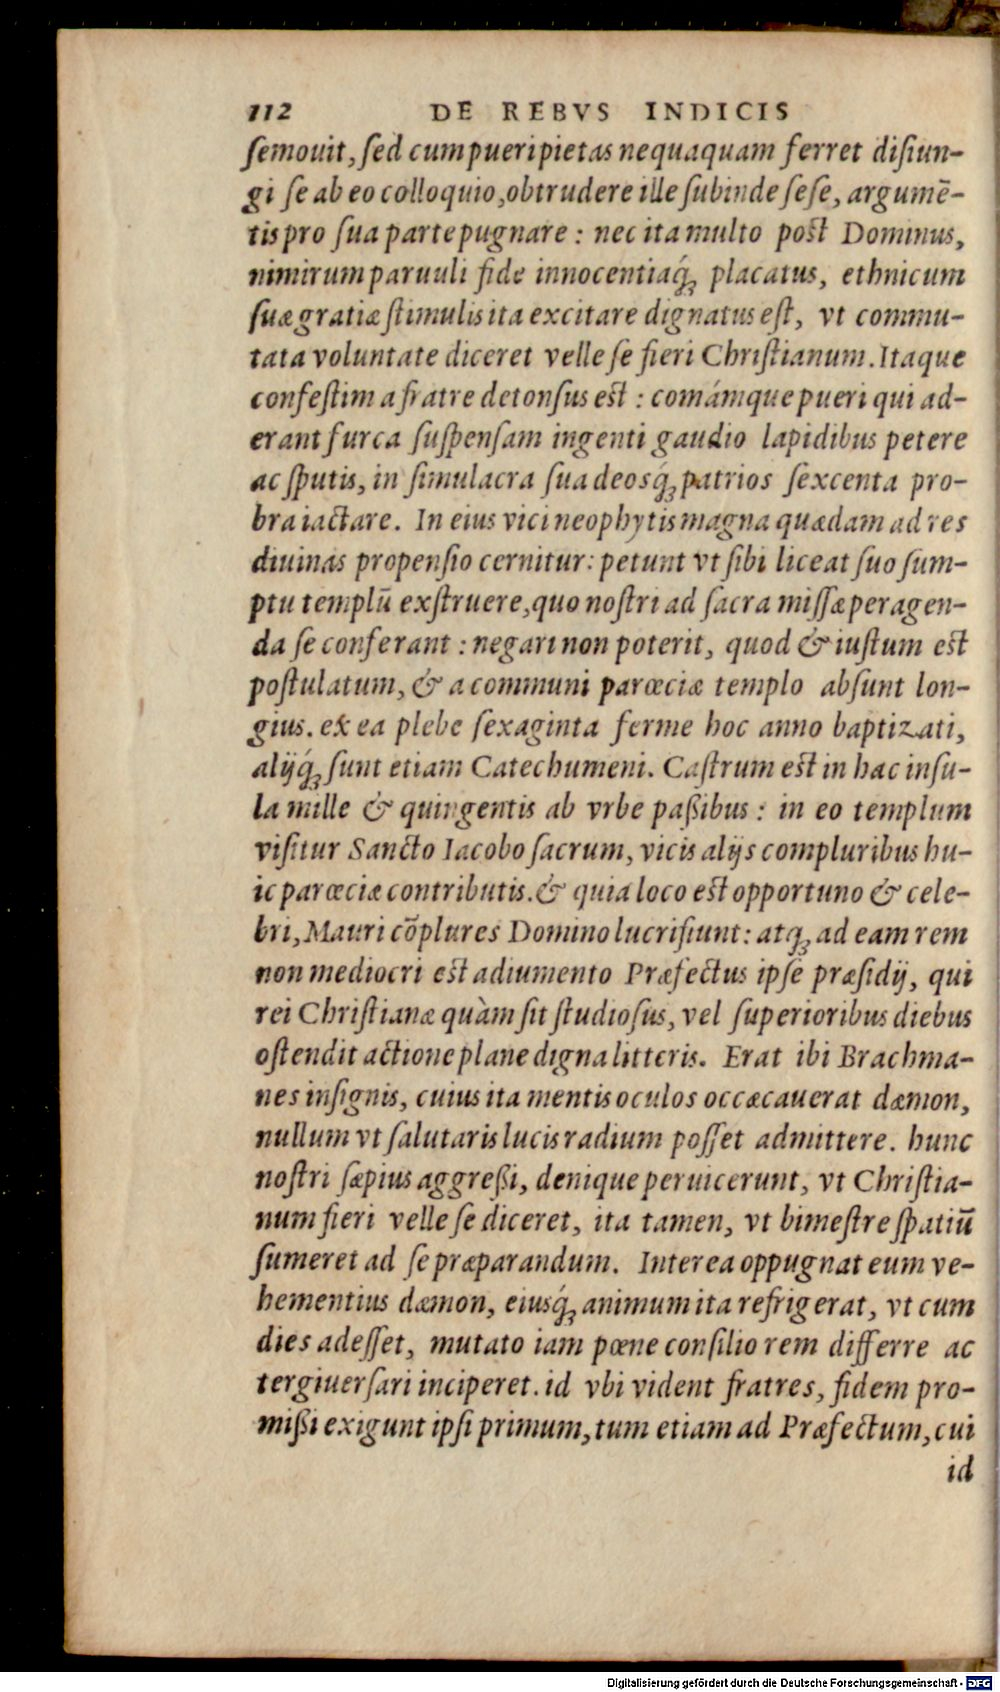 112 DE REBVS INDICIS
ſemouit, ſed cum pueri pietas nequaquam ferret diſiun-
gi ſe ab eo colloquio, obtrudere ille ſubinde ſeſe, argumē-
tis pro ſua parte pugnare : nec ita multo poſt Dominus,
nimirum paruuli fide innocentiaq́ꝫ placatus, ethnicum
ſuæ gratiæ ſtimulis ita excitare dignatus eſt, vt commu-
tata voluntate diceret velle ſe fieri Chriſtianum. Itaque
confeſtim a fratre detonſus eſt : comámque pueri qui ad-
erant furca ſuſpenſam ingenti gaudio lapidibus petere
ac ſputis, in ſimulacra ſua deosq́ꝫ patrios ſexcenta pro-
bra iactare. In eius vici neophytis magna quædam ad res
diuinas propenſio cernitur: petunt vt ſibi liceat ſuo ſum-
ptu templū exſtruere, quo noſtri ad ſacra miſſæ peragen-
da ſe conferant : negari non poterit, quod & iuſtum eſt
poſtulatum, & a communi parœciæ templo abſunt lon-
gius. ex ea plebe ſexaginta ferme hoc anno baptizati,
alijq́ꝫ ſunt etiam Catechumeni. Caſtrum eſt in hac inſu-
la mille & quingentis ab vrbe paßibus : in eo templum
viſitur Sancto Iacobo ſacrum, vicis alijs compluribus hu-
ic parœciæ contributis. & quia loco eſt opportuno & cele-
bri, Mauri cōplures Domino lucrifiunt: atqꝫ ad eam rem
non mediocri eſt adiumento Præfectus ipſe præſidij, qui
rei Chriſtianæ quàm ſit ſtudioſus, vel ſuperioribus diebus
oſtendit actione plane digna litteris. Erat ibi Brachma-
nes inſignis, cuius ita mentis oculos occæcauerat dæmon,
nullum vt ſalutaris lucis radium poſſet admittere. hunc
noſtri ſæpius aggreßi, denique peruicerunt, vt Chriſtia-
num fieri velle ſe diceret, ita tamen, vt bimeſtre ſpatiū
ſumeret ad ſe præparandum. Interea oppugnat eum ve-
hementius dæmon, eiusq́ꝫ animum ita refrigerat, vt cum
dies adeſſet, mutato iam pœne conſilio rem differre ac
tergiuerſari inciperet. id vbi vident fratres, fidem pro-
mißi exigunt ipſi primum, tum etiam ad Præfectum, cui
id
Digitalisierung gefördert durch die Deutsche Forschungsgemeinschaft - DFG